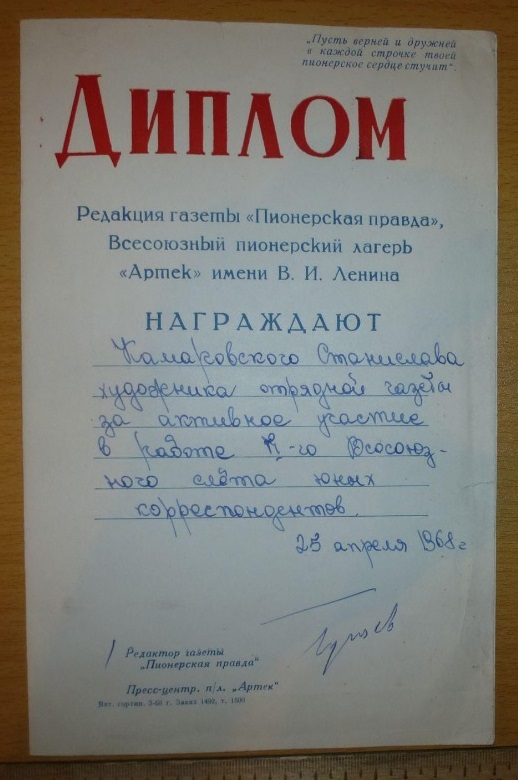 „Пусть верней и дружней
в каждой строчке твоей
пионерское сердце стучит“.
ДИПЛОМ
Редакция газеты «Пионерская правда»,
Всесоюзный пионерский лагерь
«Артек» имени В. И. Ленина
НАГРАЖДАЮТ
Камаровского Станислава
художника отрядной газеты
за активное участие
в работе -го Всесоюз-
ного слёта юных
корреспондентов.
25 апреля 1968 г
Редактор газеты
„Пионерская правда“
Пресс-центр. п/л. „Артек“
Ялт. гортип. 3-68 г. Заказ 1492, т. 1500